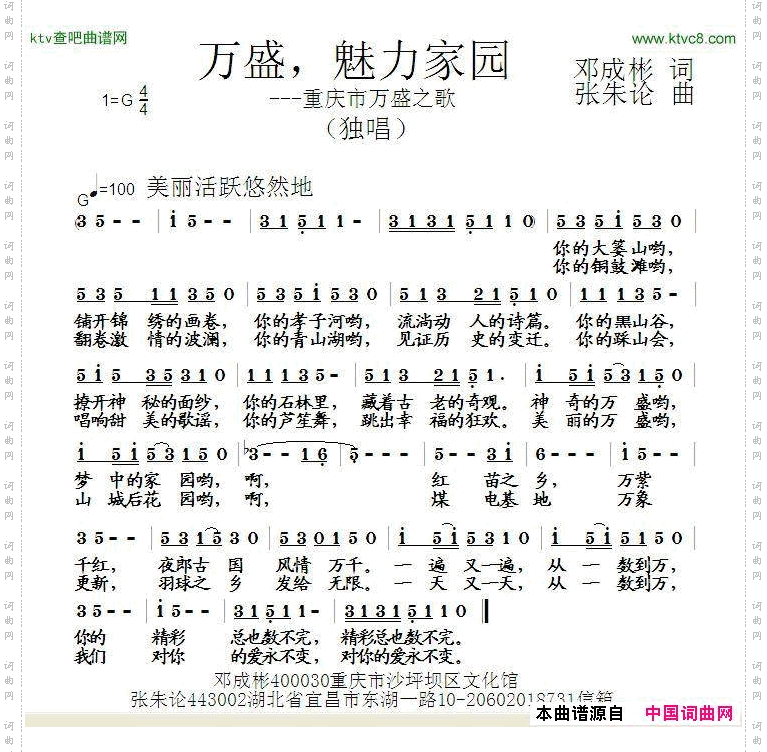 ktv查吧曲谱网
www.ktvc8.com
万盛，魅力家园
邓成彬 词
---重庆市万盛之歌
张朱论 曲
1=G 4/4
（独唱）
G ♩=100 美丽活跃悠然地
(3 5 - - | i 5 - - | 3 1 5 1 1 - | 3 1 3 1 5 1 1 0) | 5 3 5 i 5 3 0 |
你的大篓山哟，
你的铜鼓滩哟，
5 3 5 1 1 3 5 0 | 5 3 5 i 5 3 0 | 5 1 3 2 1 5 1 0 | 1 1 1 3 5 - |
铺开锦 绣的画卷， 你的孝子河哟， 流淌动 人的诗篇。 你的黑山谷，
翻卷激 情的波澜， 你的青山湖哟， 见证历 史的变迁。 你的踩山会，
5 i 5 3 5 3 1 0 | 1 1 1 3 5 - | 5 1 3 2 1 5 1 . | i 5 i 5 3 1 5 0 |
撩开神 秘的面纱， 你的石林里， 藏着古 老的奇观。 神 奇的万 盛哟，
唱响甜 美的歌谣， 你的芦笙舞， 跳出幸 福的狂欢。 美 丽的万 盛哟，
i 5 i 5 3 1 5 0 | 3 - - 1 6 | 5 - - - | 5 - - 3 i | 6 - - - | i 5 - -
梦 中的家 园哟， 啊， 红 苗之 乡， 万紫
山 城后花 园哟， 啊， 煤 电基 地 万象
3 5 - - | 5 3 1 5 i 3 0 | 5 3 0 1 5 0 | i 5 i 5 3 0 | i 5 i 5 i 0
千红， 夜郎古 国 风情 万千。 一 遍 又一遍， 从 一 数到万，
更新， 羽球之 乡 发给 无限。 一 天 又一天， 从 一 数到万，
3 5 - - | i 5 - - | 3 1 5 1 1 - | 3 1 3 1 5 1 1 0 ‖
你的 精彩 总也数不完， 精彩总也数不完。
我们 对你 的爱永不变， 对你的爱永不变。
邓成彬400030重庆市沙坪坝区文化馆
张朱论443002湖北省宜昌市东湖一路10-20602018731信箱
本曲谱源自 中国词曲网